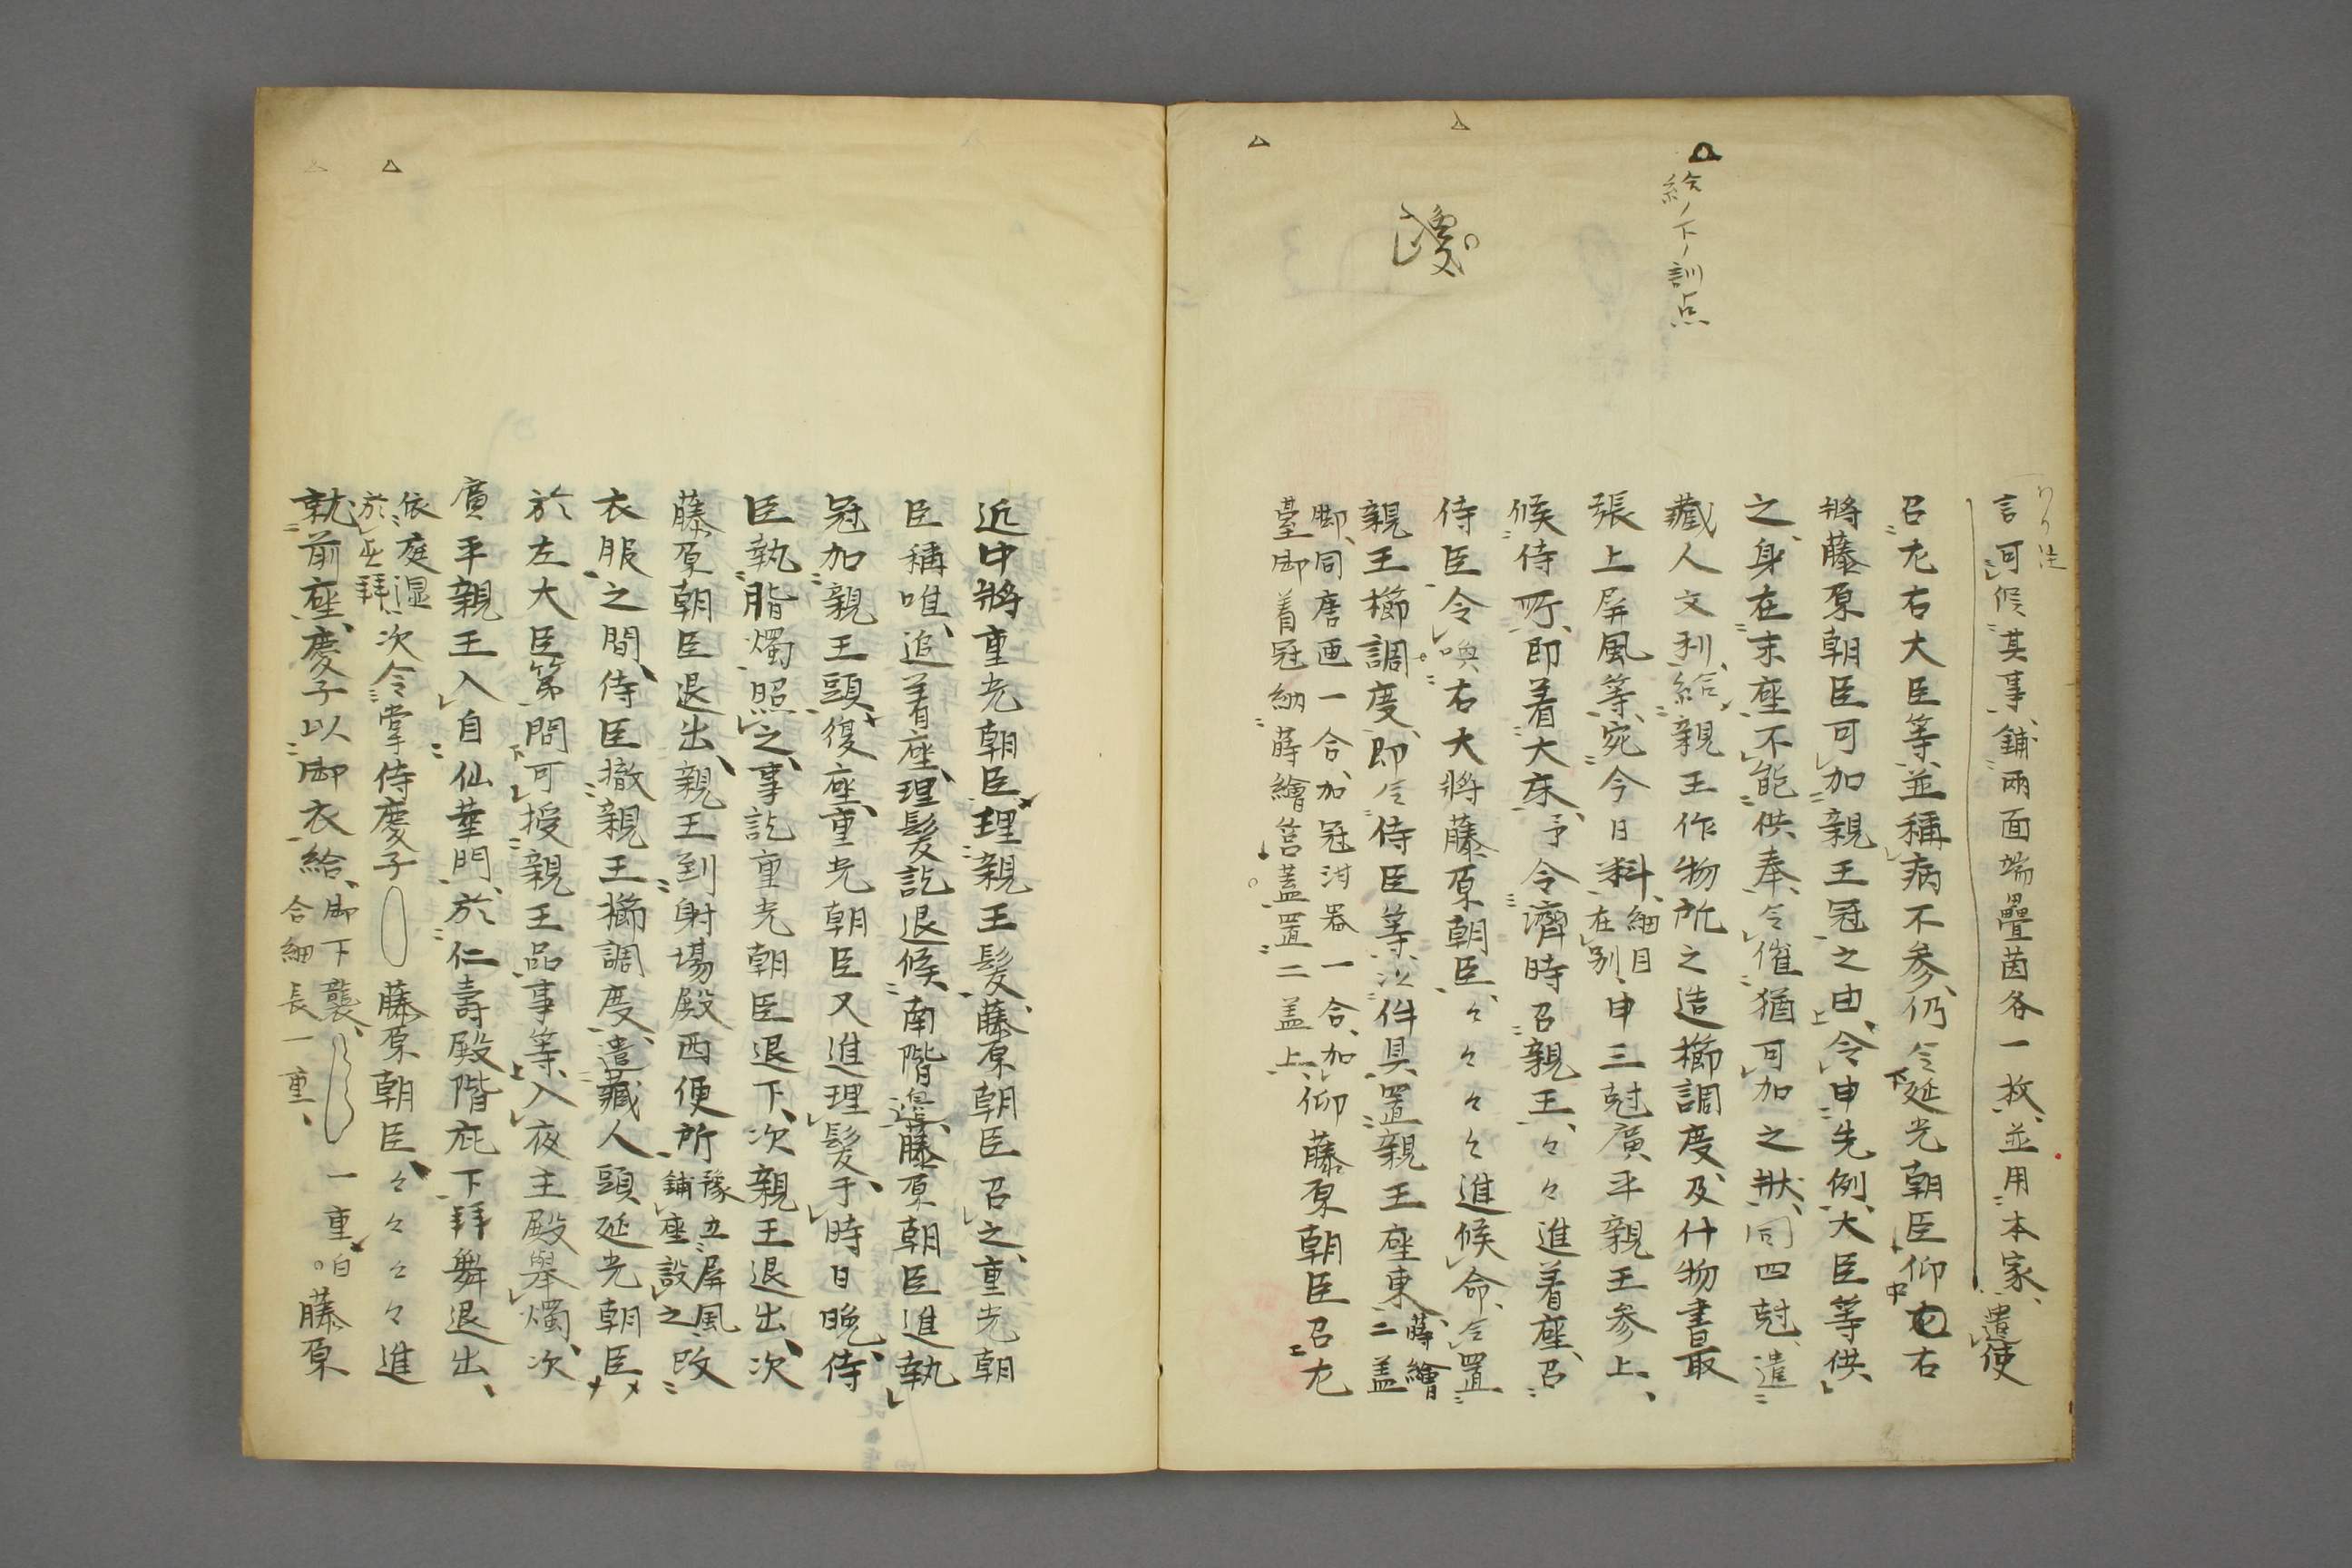 給ノ下ノ訓点
言可候其事鋪兩面端疊茵各一枚並用本家遣使
召尤右大臣等並稱病不参仍令延光朝臣仰右
將藤原朝臣可加親王冠之由令申先例大臣等供
之身在末座不能供奉令催猶可加之狀同四尅遣
藏人文利給親王作物所之造櫛調度及什物書最
張上屏風等宛今日料細目
在別申三尅廣平親王参上
候侍所即着大床予令濟時召親王々々進着座召
侍臣令喚右大將藤原朝臣々々々々進候命令置
親王櫛調度即令侍臣等以件具置親王座東蒔繪
二盖
脚同唐匣一合加冠泔器一合加
臺脚着冠納蒔繪筥蓋置二盖上仰藤原朝臣召尤
近中將重光朝臣理親王髮藤原朝臣召之重光朝
臣稱唯追着座理髮訖退候南階邊藤原朝臣進執
冠加親王頭復座重光朝臣又進理髮于時日晩侍
臣執脂燭照之事訖重光朝臣退下次親王退出次
藤原朝臣退出親王到射場殿西便所豫立屏風
鋪座設之改
衣服之間侍臣撤親王櫛調度遣藏人頭延光朝臣
於左大臣第問可授親王品事等入夜主殿擧燭次
廣平親王入自仙華門於仁壽殿階庇下拜舞退出
依庭湿
於此拜次令掌侍慶子藤原朝臣々々々々進
就前座慶子以御衣給御下襲一重
合細長一重藤原